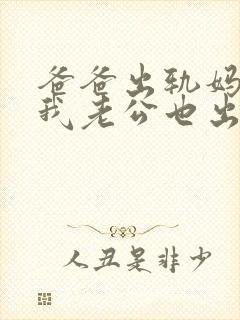 爸爸出轨妈
我老公也出
人丑是非少